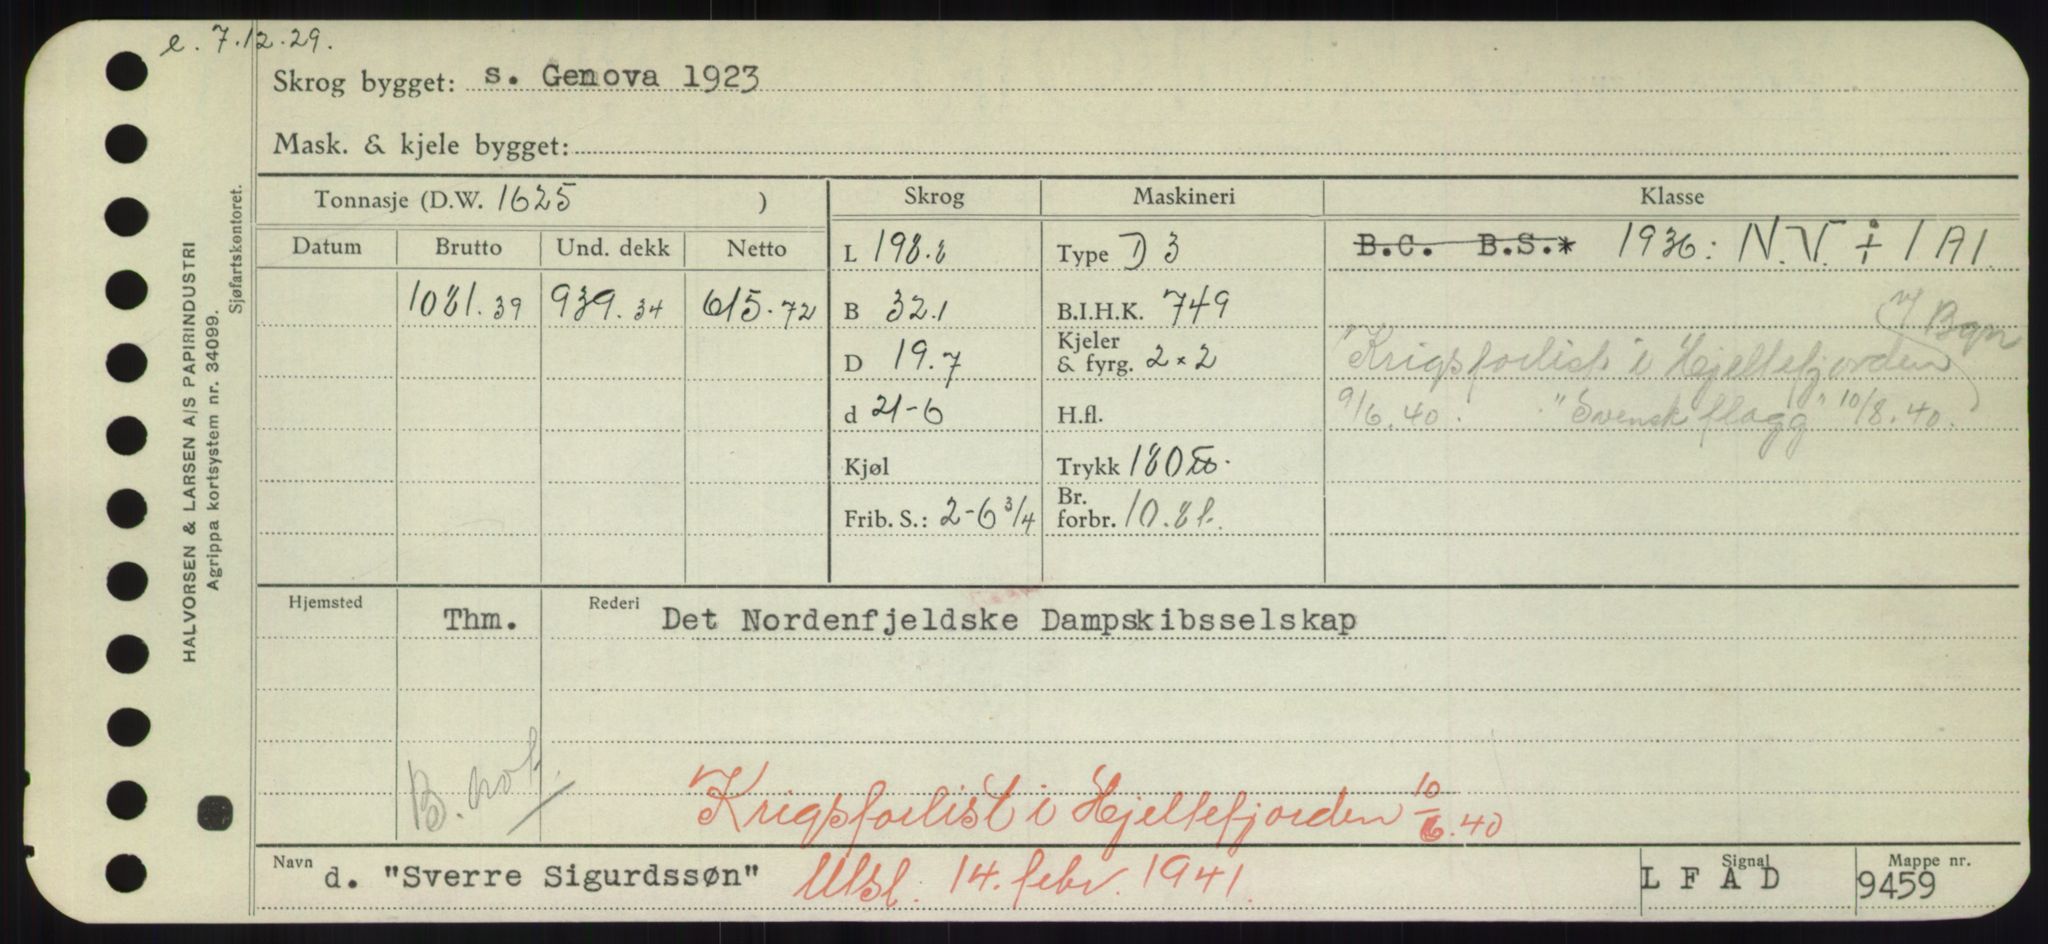 e. 7.12.29.
Skrog bygget: s. Genova 1923
Mask. & kjele bygget:
Tonnasje (D.W. 1625 ) Skrog Maskineri Klasse
Datum Brutto Und. dekk Netto L 198.8 Type D 3 B.C. B.S.* 1936: N.V. ✢ 1 A1.
1081.39 939.34 615.72 B 32.1 B.I.H.K. 749
D 19.7 Kjeler & fyrg. 2×2 "Krigsforlist i Hjeltefjorden
d 21-6 H.fl. 9/6.40. "Svensk flagg" 10/8.40.
Kjøl Trykk 180
Frib. S.: 2-6 3/4 Br. forbr. 10.8t.
Hjemsted Thm. Rederi Det Nordenfjeldske Dampskibsselskap
B. not.
Krigsforlist i Hjeltefjorden 10/6.40
Navn d. "Sverre Sigurdssøn" Utsl. 14. febr. 1941. Signal L F A D Mappe nr. 9459
HALVORSEN & LARSEN A/S PAPIRINDUSTRI
Agrippa kortsystem nr. 34099.
Sjøfartskontoret.